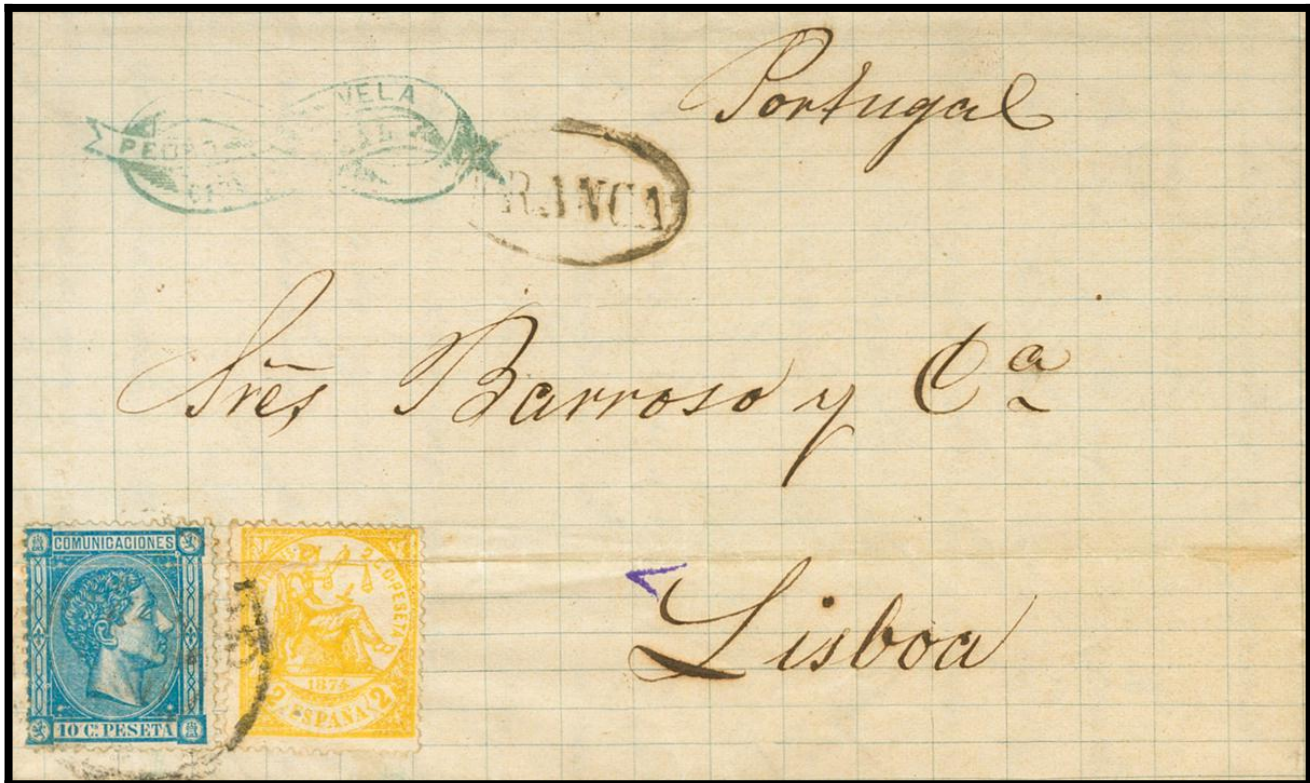 Portugal
VELA
PEDRO
FRANCA
Srẽs Barroso y Cª
Lisboa
COMUNICACIONES
10 C. PESETA
2 C. D. PESETA
1874
2 ESPAÑA 2